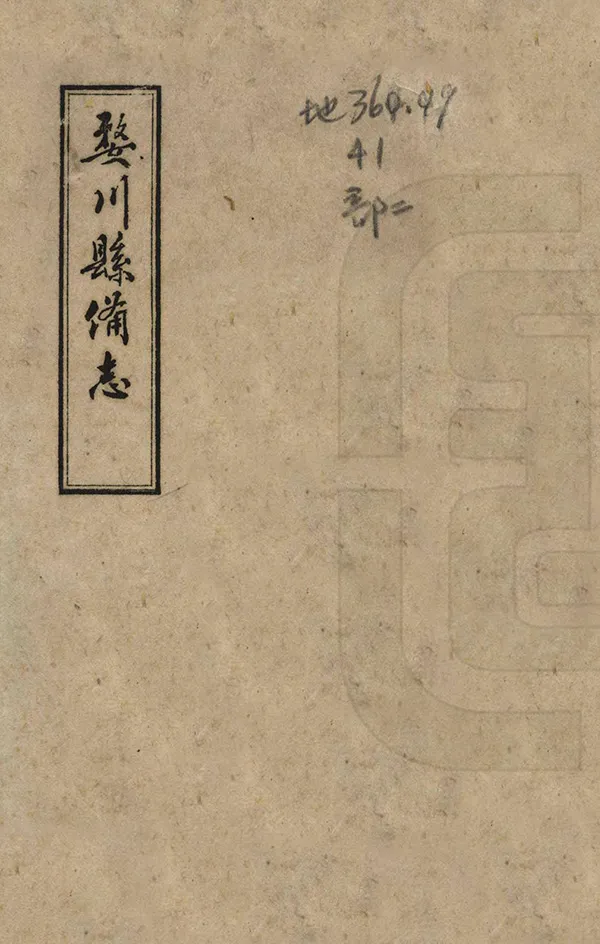 婺川縣備志
地364.49
41
部二